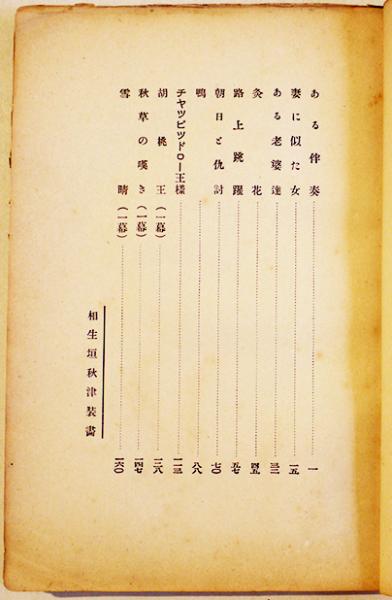 ある伴奏 一
妻に似た女 一五
ある老婆達 三二
灸花 四五
路上跳躍 五七
朝日と仇討 七〇
鴨 八八
チヤツピツドロー王様 一一三
胡桃王(一幕) 一三八
秋草の嘆き(一幕) 一四七
雪晴(一幕) 一六〇
相生垣秋津装畵